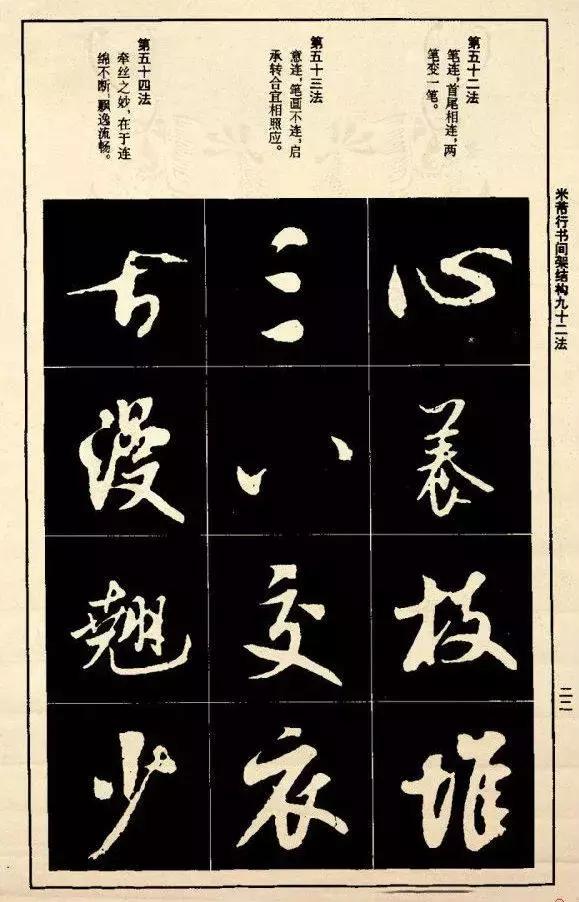 米芾行书间架结构九十二法
第五十二法
笔连,首尾相连,两
笔变一笔。
第五十三法
意连,笔画不连,启
承转合宜相照应。
第五十四法
牵丝之妙,在于连
绵不断,飘逸流畅。
心养枝堆
三八交衣
古漫翘少
二二